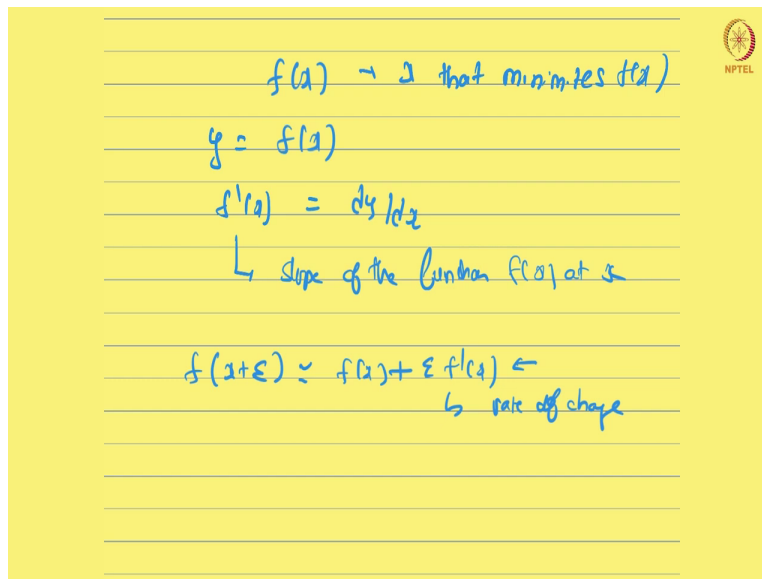 NPTEL
f(x) → x that minimizes f(x)
y = f(x)
f'(x) = dy/dx
↳ slope of the function f(x) at x
f(x+ε) ≃ f(x) + ε f'(x) ←
↳ rate of change